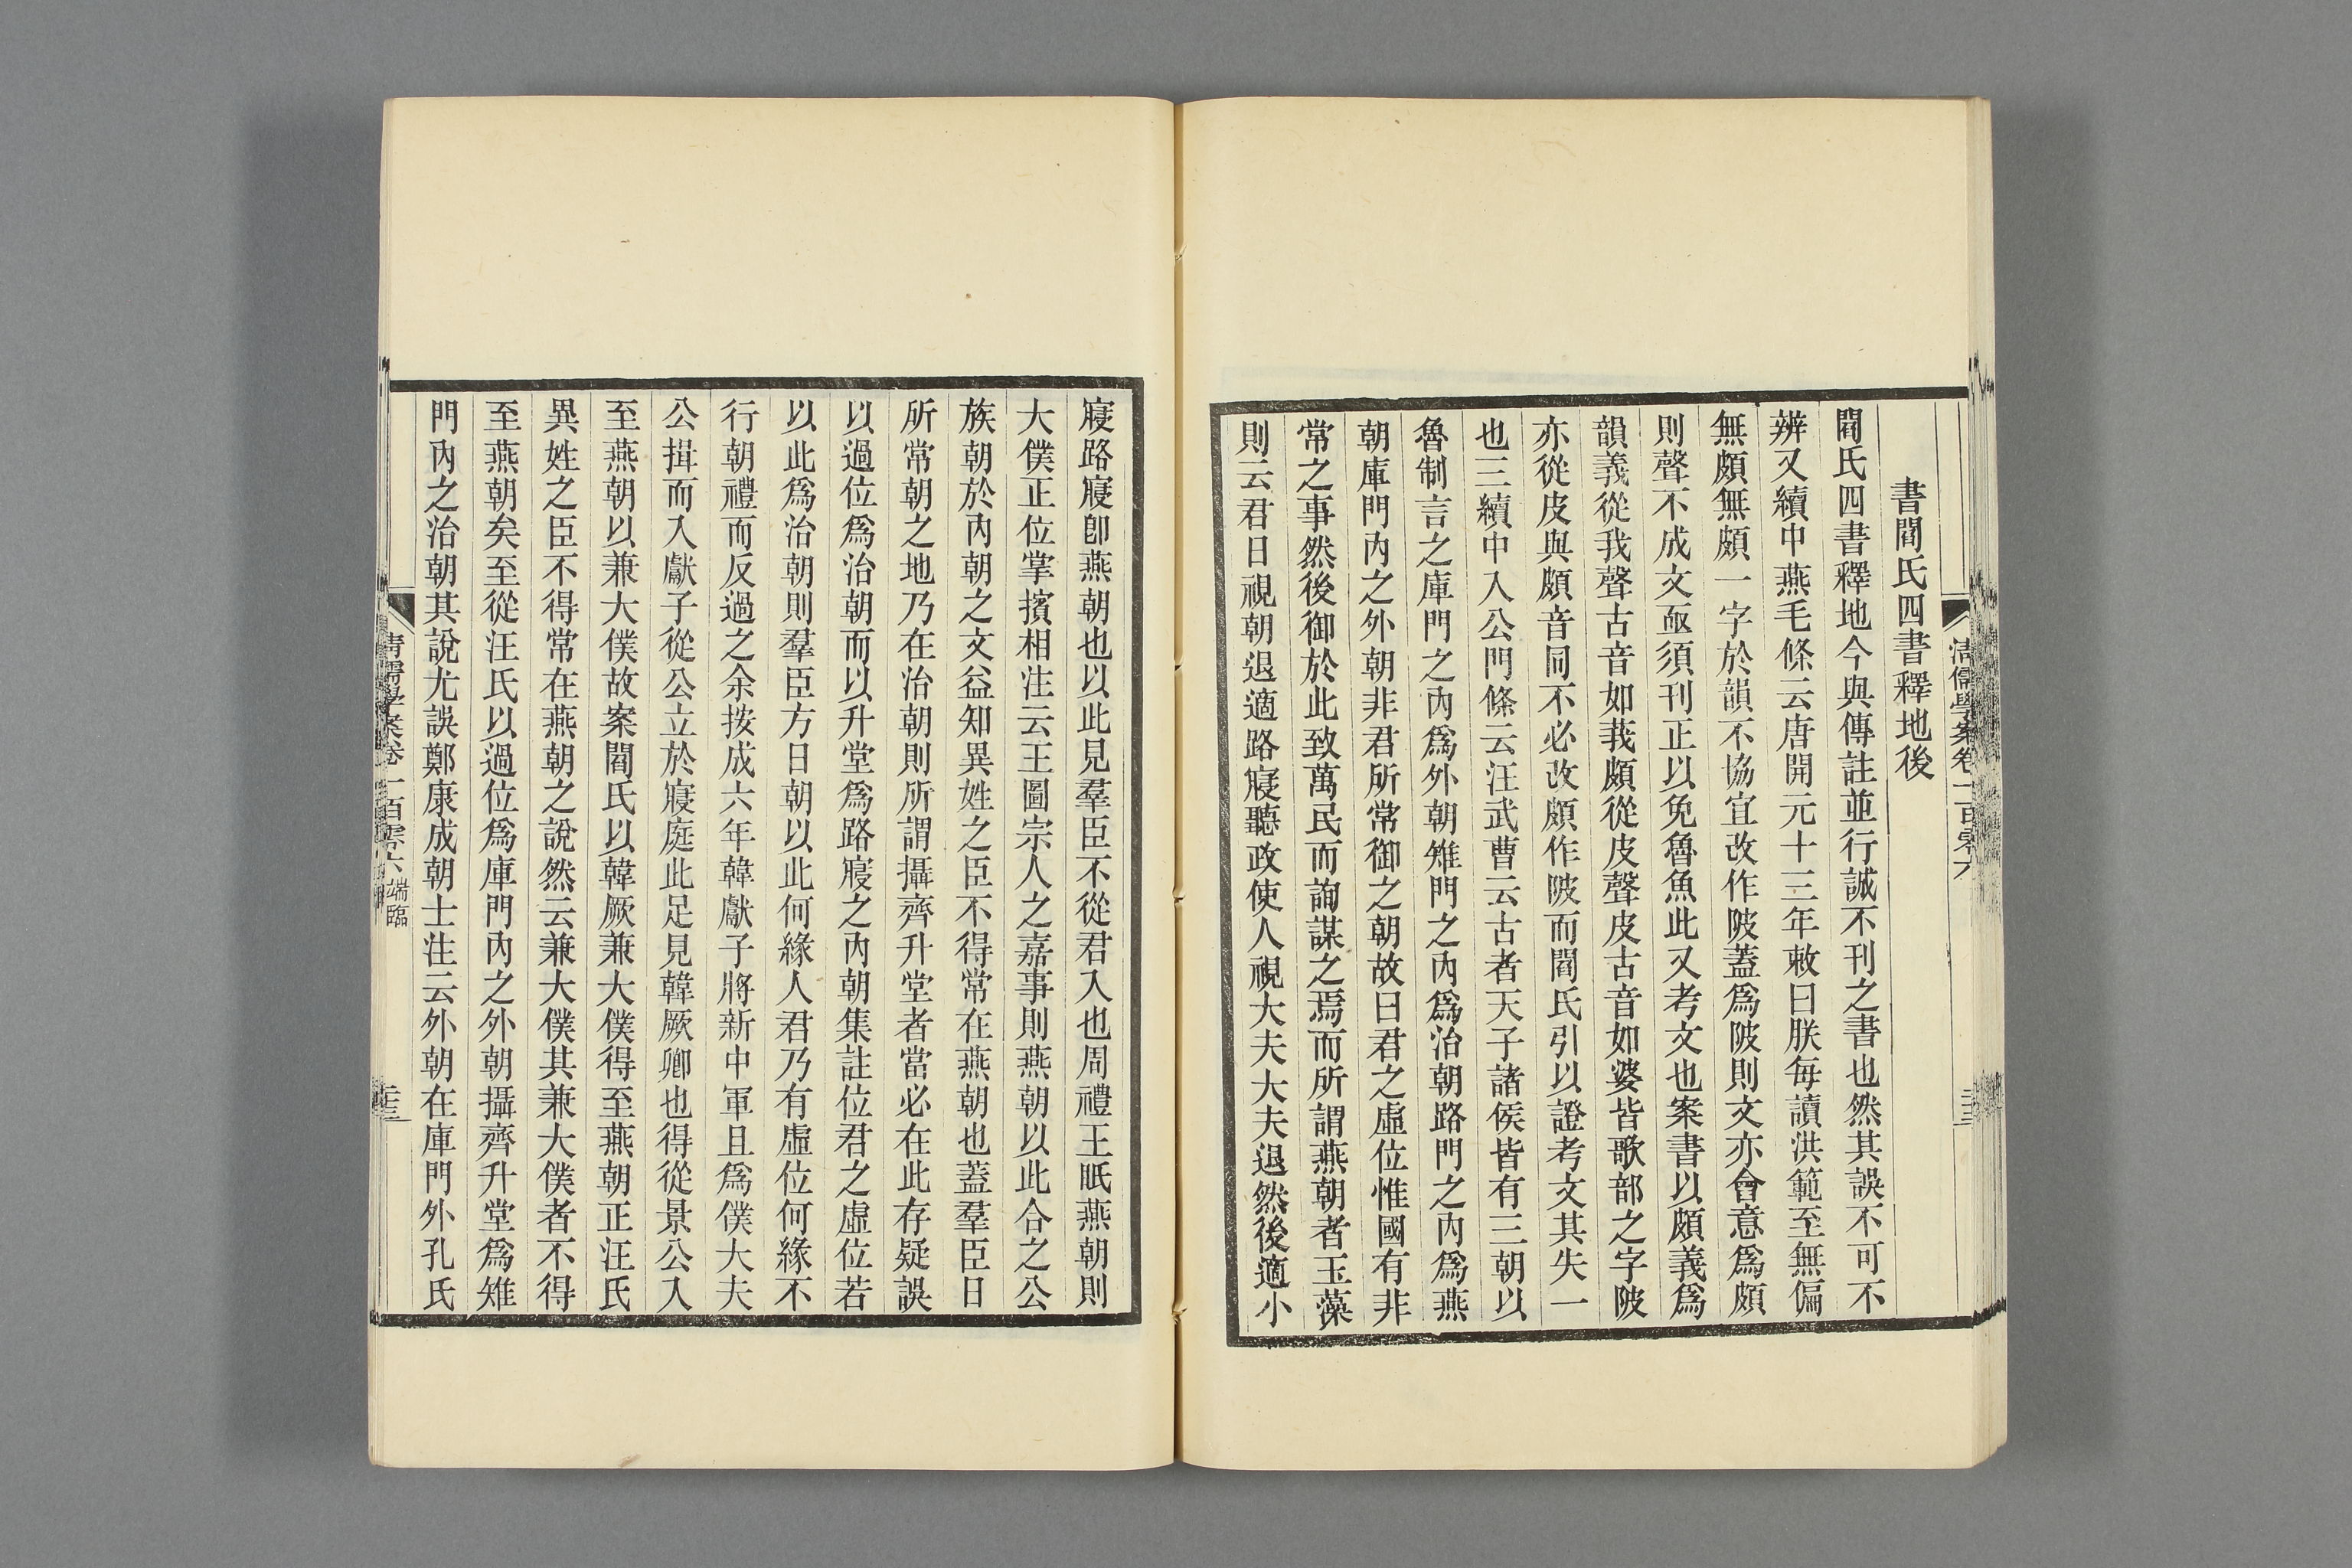 清儒學案卷一百零六
書閻氏四書釋地後
閻氏四書釋地今與傳註並行誠不刊之書也然其誤不可不
辨又續中燕毛條云唐開元十三年敕曰朕每讀洪範至無偏
無頗無頗一字於韻不協宜改作陂蓋爲陂則文亦會意爲頗
則聲不成文亟須刊正以免魯魚此又考文也案書以頗義爲
韻義從我聲古音如莪頗從皮聲皮古音如婆皆歌部之字陂
亦從皮與頗音同不必改頗作陂而閻氏引以證考文其失一
也三續中入公門條云汪武曹云古者天子諸侯皆有三朝以
魯制言之庫門之內爲外朝雉門之內爲治朝路門之內爲燕
朝庫門內之外朝非君所常御之朝故曰君之虛位惟國有非
常之事然後御於此致萬民而詢謀之焉而所謂燕朝者玉藻
則云君日視朝退適路寢聽政使人視大夫大夫退然後適小
寢路寢卽燕朝也以此見羣臣不從君入也周禮王眂燕朝則
大僕正位掌擯相注云王圖宗人之嘉事則燕朝以此合之公
族朝於內朝之文益知異姓之臣不得常在燕朝也蓋羣臣日
所常朝之地乃在治朝則所謂攝齊升堂者當必在此存疑誤
以過位爲治朝而以升堂爲路寢之內朝集註位君之虛位若
以此爲治朝則羣臣方日朝以此何緣人君乃有虛位何緣不
行朝禮而反過之余按成六年韓獻子將新中軍且爲僕大夫
公揖而入獻子從公立於寢庭此足見韓厥卿也得從景公入
至燕朝以兼大僕故案閻氏以韓厥兼大僕得至燕朝正汪氏
異姓之臣不得常在燕朝之說然云兼大僕其兼大僕者不得
至燕朝矣至從汪氏以過位爲庫門內之外朝攝齊升堂爲雉
門內之治朝其說尤誤鄭康成朝士注云外朝在庫門外孔氏
清儒學案卷一百零六 端臨